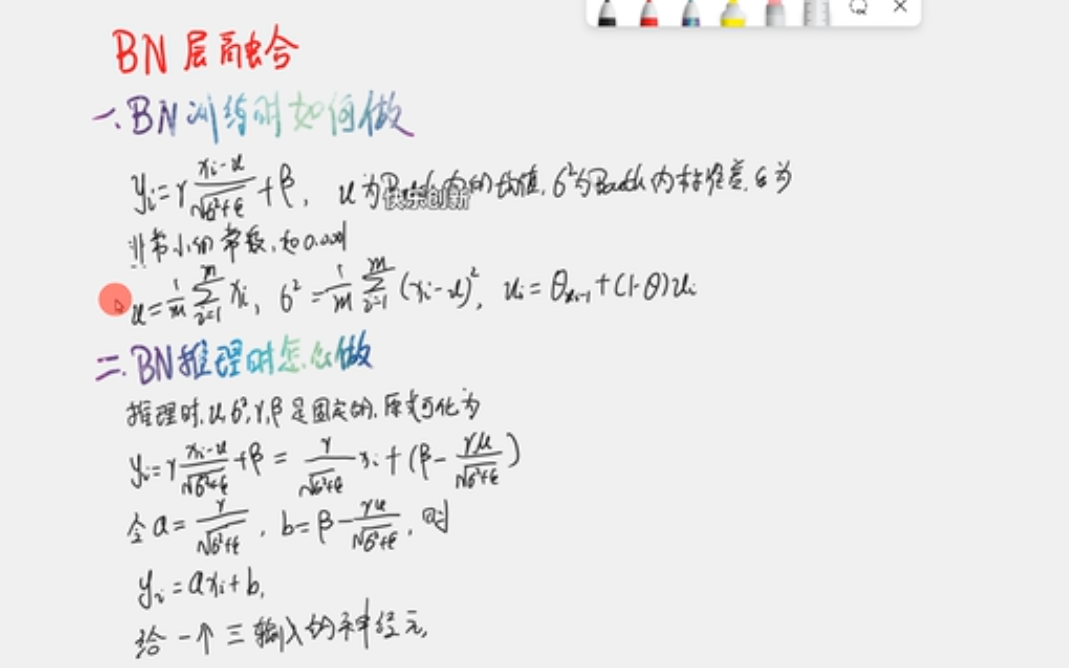 BN 层融合
一、BN训练时如何做
yᵢ=γ (xᵢ-u)/√(б²+ϵ) +β, u为Batch内的均值, б²为Batch内标准差, ϵ为
快乐创新
非常小的常数, 如0.001
u=1/m ∑ᵢ₌₁ᵐ xᵢ, б²=1/m ∑ᵢ₌₁ᵐ (xᵢ-u)², uᵢ=θᵤᵢ₋₁+(1-θ)uᵢ
二.BN推理时怎么做
推理时, u, б², γ, β是固定的, 原式可化为
yᵢ=γ (xᵢ-u)/√(б²+ϵ) +β = γ/√(б²+ϵ) xᵢ+(β- γμ/√(б²+ϵ))
令a= γ/√(б²+ϵ), b=β- γu/√(б²+ϵ), 则
yᵢ=axᵢ+b,
给一个三输入的神经元,